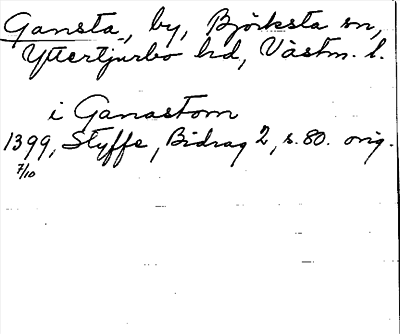 Gansta, by, Björksta sn,
Yttertjurbo hd, Västm. l.
i Ganastom
1399, Styffe, Bidrag 2, s. 80. orig.
7/10